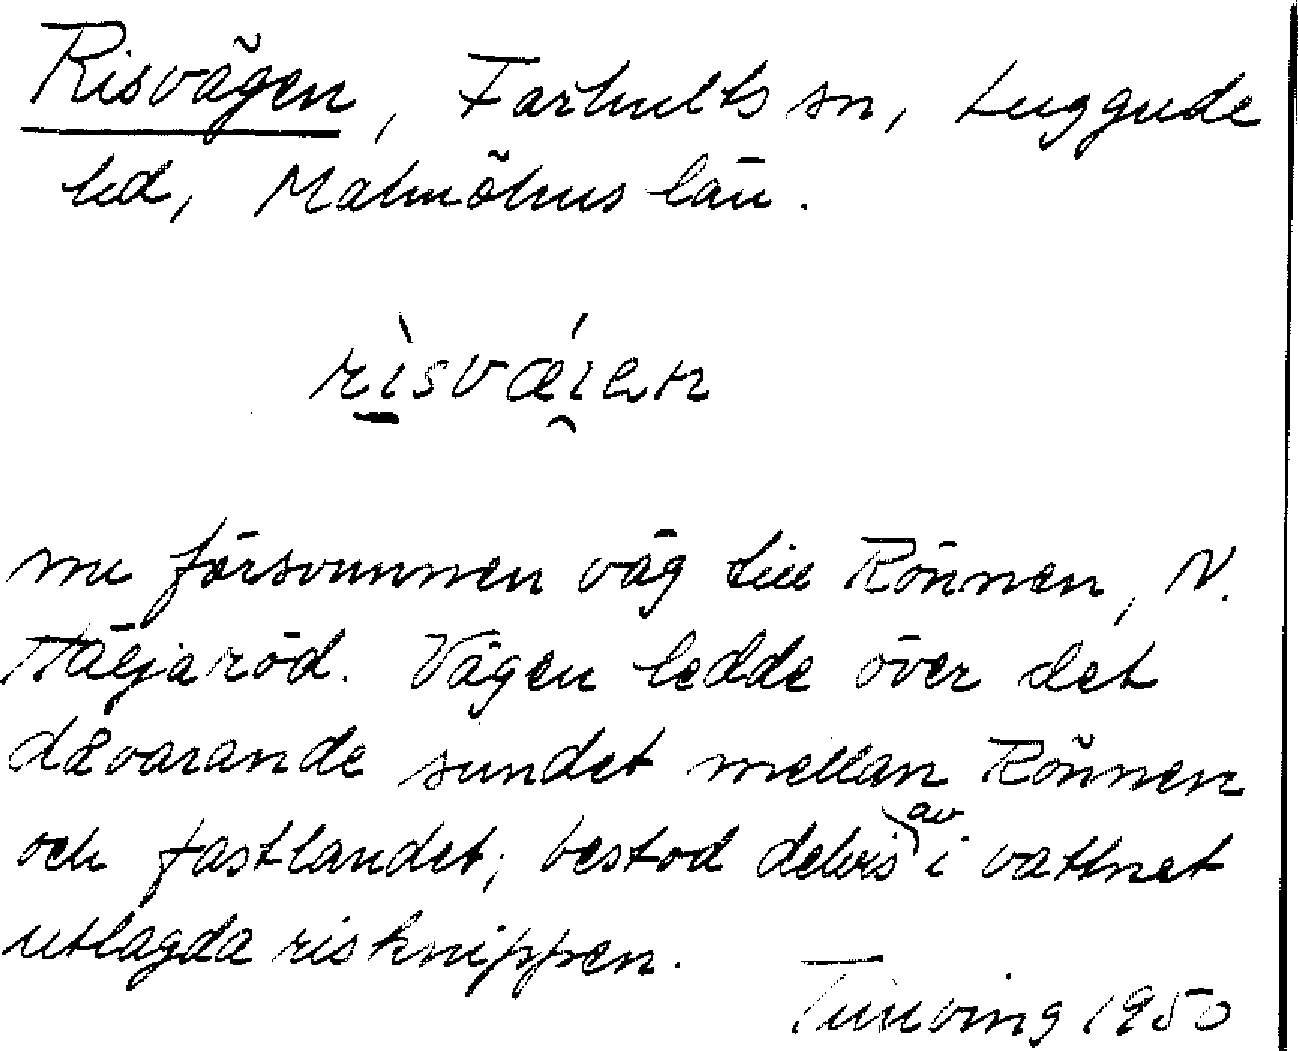 Risvägen, Farhults sn, Luggude
hd, Malmöhus län.
rìsvǽi̯en
nu försvunnen väg till Rönnen, N.
Häljaröd. Vägen ledde över det
dåvarande sundet mellan Rönnen
och fastlandet; bestod delvis av i vattnet
utlagda risknippen.
Tuneving 1950